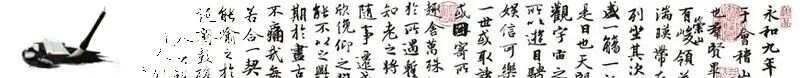 永和九年
于會稽山
也羣賢畢
有崇山峻領
湍暎帶
列坐其次
盛一觴一
是日也天
觀宇宙之
所以遊目騁
娛信可樂
一世或取諸
或因寄所
趣舍萬殊
於所遇輒
知老之將
隨事遷
欣俛仰之
能不以之興
期於盡古
不痛哉每
若合一契
能喻之於